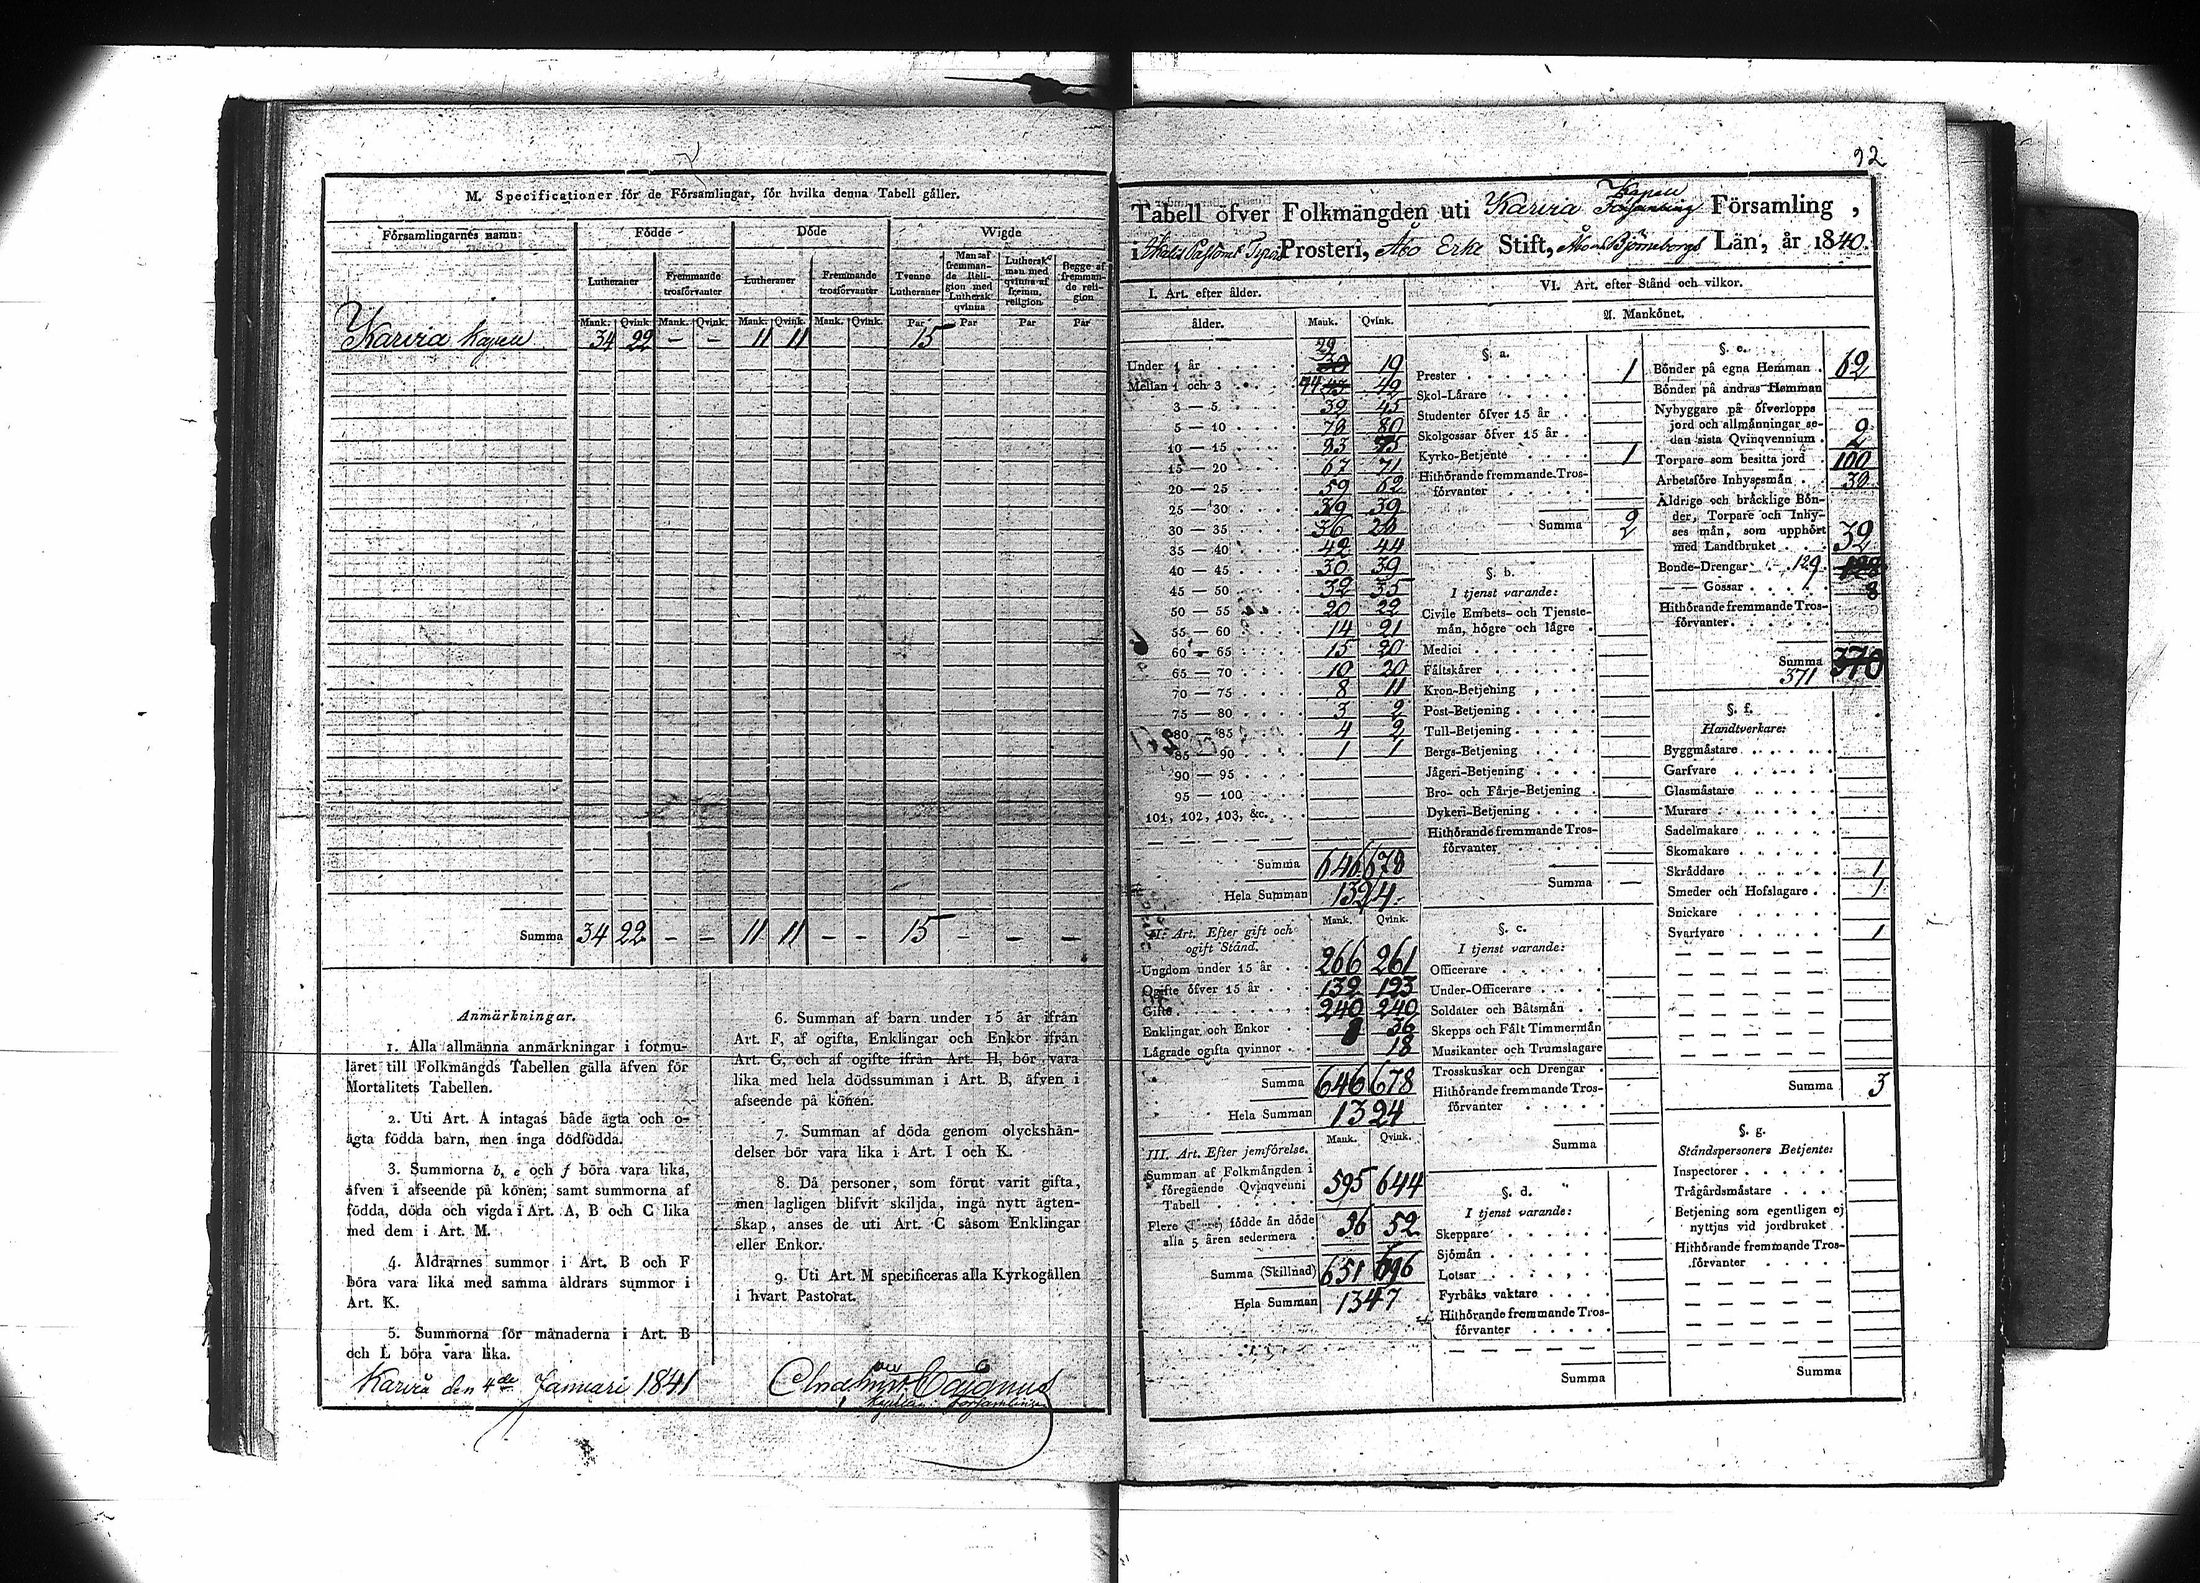 M. Specificationer för de Församlingar, för hvilka denna Tabell gäller.
Församlingarnes namn: Födde Döde Wigde
Lutheraner Fremmande trosförvanter Lutheraner Fremmande trosförvanter Tvenne Lutheraner Man af fremmande Religion med Luthersk qvinna Luthersk man med qvinna af fremm. religion Begge af fremmande religion
Mank. Qvink. Mank. Qvink. Mank. Qvink. Mank. Qvink. Par Par Par Par
Karvia Kapell 34 22 – – 11 11 15
Summa 34 22 – – 11 11 – – 15 – – –
Anmärkningar.
1. Alla allmänna anmärkningar i formu-
läret till Folkmängds Tabellen gälla äfven för
Mortalitets Tabellen.
2. Uti Art. A intagas både ägta och o-
ägta födda barn, men inga dödfödda.
3. Summorna b, e och f böra vara lika,
äfven i afseende på könen; samt summorna af
födda, döda och vigda i Art. A, B och C lika
med dem i Art. M.
4. Åldrarnes summor i Art. B och F
böra vara lika med samma åldrars summor i
Art. K.
5. Summorna för månaderna i Art. B
och L böra vara lika.
6. Summan af barn under 15 år ifrån
Art. F, af ogifta, Enklingar och Enkor ifrån
Art. G, och af ogifte ifrån Art. H, bör vara
lika med hela dödssumman i Art. B, äfven i
afseende på könen.
7. Summan af döda genom olyckshän-
delser bör vara lika i Art. I och K.
8. Då personer, som förut varit gifta,
men lagligen blifvit skiljda, ingå nytt ägten-
skap, anses de uti Art. C såsom Enklingar
eller Enkor.
9. Uti Art. M specificeras alla Kyrkogällen
i hvart Pastorat.
Karvia den 4de Januari 1841
92
Kapell
Tabell öfver Folkmängden uti Karvia Församling,
i Prosteri, Åbo Erke Stift, Åbo och Björneborgs Län, år 1840.
I. Art. efter ålder.
ålder. Mank. Qvink.
29
Under 1 år 30 19
Mellan 1 och 3 44 43 42
3 — 5 32 45
5 — 10 78 80
10 — 15 83 75
15 — 20 67 71
20 — 25 59 62
25 — 30 39 39
30 — 35 36 28
35 — 40 42 44
40 — 45 30 39
45 — 50 32 35
50 — 55 20 22
55 — 60 14 21
60 — 65 15 20
65 — 70 10 20
70 — 75 8 11
75 — 80 3 2
80 — 85 4 2
85 — 90 1 1
90 — 95
95 — 100
101, 102, 103, &c.
Summa 646 678
Hela Summan 1324
Mank. Qvink.
II. Art. Efter gift och
ogift Stånd.
Ungdom under 15 år 266 261
Ogifte öfver 15 år 132 123
Gifte 240 240
Enklingar och Enkor 8 36
Lägrade ogifta qvinnor 18
Summa 646 678
Hela Summan 1324
Mank. Qvink.
III. Art. Efter jemförelse.
Summan af Folkmängden i
föregående Qvinqvenni
Tabell 595 644
Flere födde än döde
alla 5 åren sedermera 56 52
Summa (Skillnad) 651 696
Hela Summan 1347
VI. Art. efter Stånd och vilkor.
A. Mankönet.
§. a.
Prester 1
Skol-Lärare
Studenter öfver 15 år
Skolgossar öfver 15 år
Kyrko-Betjente 1
Hithörande fremmande Tros-
förvanter
Summa 2
§. b.
I tjenst varande:
Civile Embets- och Tjenste-
män, högre och lägre
Medici
Fältskärer
Kron-Betjening
Post-Betjening
Tull-Betjening
Bergs-Betjening
Jägeri-Betjening
Bro- och Färje-Betjening
Dykeri-Betjening
Hithörande fremmande Tros-
förvanter
Summa —
§. c.
I tjenst varande:
Officerare
Under-Officerare
Soldater och Båtsmän
Skepps och Fält Timmermän
Musikanter och Trumslagare
Trosskuskar och Drengar
Hithörande fremmande Tros-
förvanter
Summa
§. d.
I tjenst varande:
Skeppare
Sjömän
Lotsar
Fyrbåks vaktare
Hithörande fremmande Tros-
förvanter
Summa
§. e.
Bönder på egna Hemman 62
Bönder på andras Hemman
Nybyggare på öfverlopps
jord och allmänningar se-
dan sista Qvinqvennium 2
Torpare som besitta jord 100
Arbetsföre Inhysesmän 30
Åldrige och bräcklige Bön-
der, Torpare och Inhy-
ses män, som upphört
med Landtbruket 39
Bonde-Drengar 129 128
— — Gossar 8
Hithörande fremmande Tros-
förvanter
Summa 370
371
§. f.
Handtverkare:
Byggmästare
Garfvare
Glasmästare
Murare
Sadelmakare
Skomakare
Skräddare 1
Smeder och Hofslagare 1
Snickare
Svarfvare 1
Summa 3
§. g.
Ståndspersoners Betjente:
Inspectorer
Trägårdsmästare
Betjening som egentligen ej
nyttjas vid jordbruket
Hithörande fremmande Tros-
förvanter
Summa